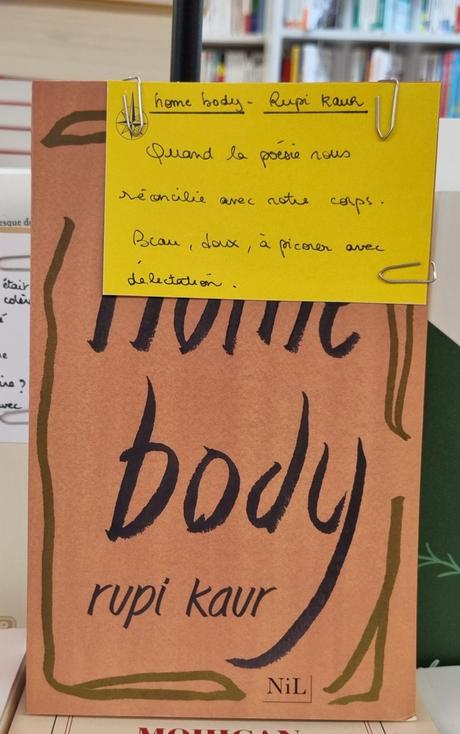 home body - Rupi Kaur
Quand la poésie nous
réconcilie avec notre corps.
Beau, doux, à picorer avec
délectation.
home
body
rupi kaur
NiL
esque de
était
colèr
é
e
ire ?
avec
MOHICAN